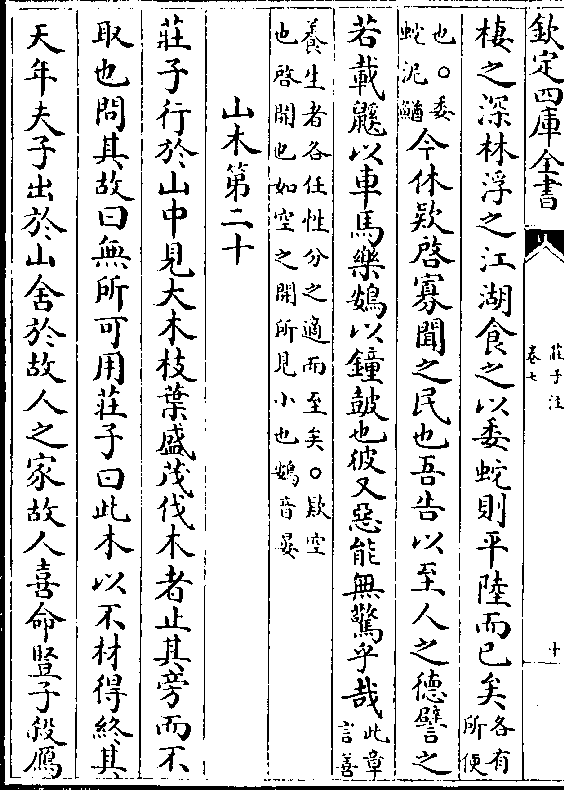 欽定四庫全書
莊子注
卷七
十
棲之深林浮之江湖食之以委蛇則平陸而已矣各有所便
也○委蛇泥鰌今休款啓寡聞之民也吾告以至人之德譬之
若載鼷以車馬樂鴳以鐘鼓也彼又惡能無驚乎哉此章言善
養生者各任性分之適而至矣○款空
也啓開也如空之開所見小也鴳音晏
山木第二十
莊子行於山中見大木枝葉盛茂伐木者止其旁而不
取也問其故曰無所可用莊子曰此木以不材得終其
天年夫子出於山舍於故人之家故人喜命豎子殺鴈